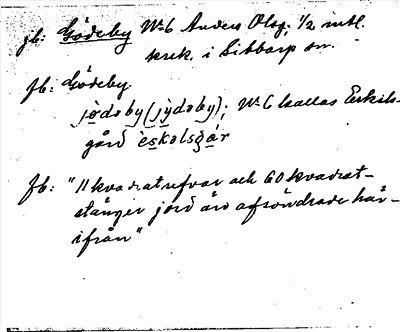 jb: Gödeby No 6 Anders Olsg. 1/2 mtl.
skrk. i Sibbarp sn.
fb: Gödeby
jødəby (jydəby); No 6 kallas Eskils-
gård èskolsgár
fb: "11 kvadratrefvar och 60 kvadrat-
stänger jord äro afsöndrade här-
ifrån"